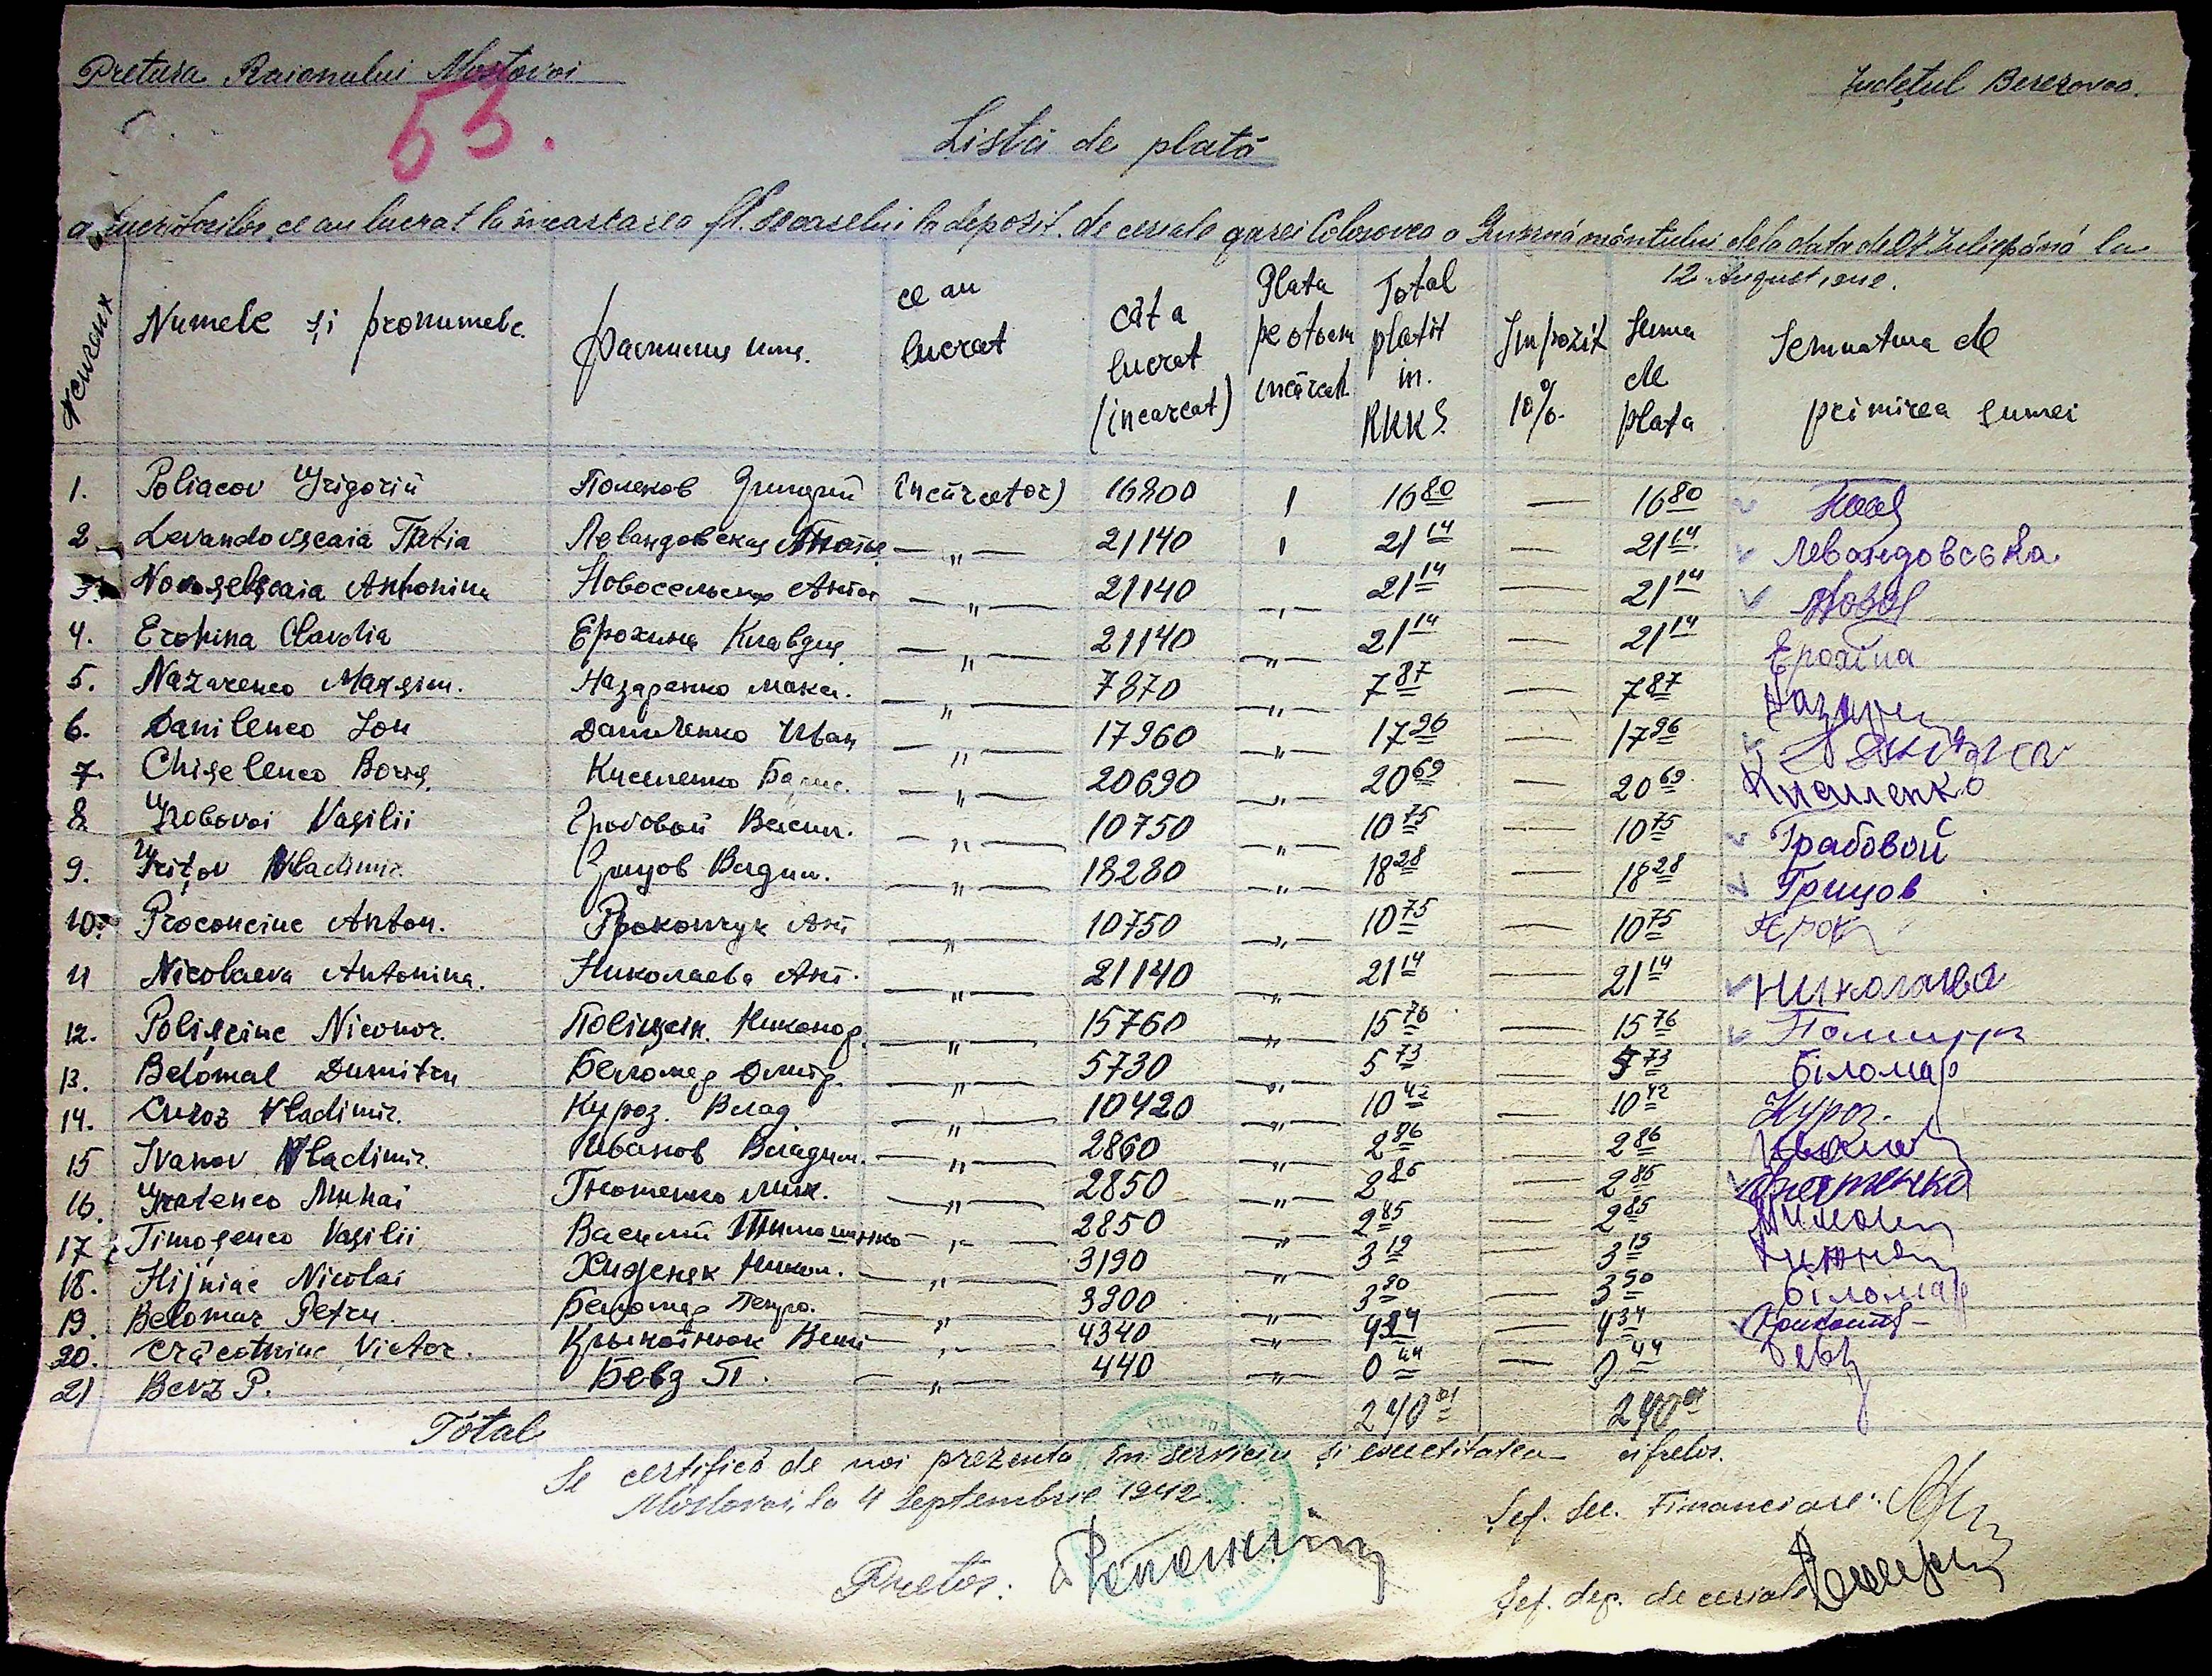 Pretura Raionului Mostovoi
Județul Berezovca.
53.
Listă de plată
a lucrătorilor ce au lucrat la încarcarea fl. soarelui la depozit. de ceriale garei Colosovca a Guvernământului dela data de 27 Iulie până la
12 August 1942.
Numele și pronumele.
Фамилия имя.
ce au lucrat
cât a lucrat (incarcat)
Plata pe incărcat
Total platit in. RKKS.
Impozit 10%.
Suma de plata
Semnatura de primirea sumei
1. Poliacov Grigorii Поляков Григорий încărcător) 16800 1 16 80 — 16 80
2 Levandovscaia Tatia Левандовская — „ — 21140 1 21 14 — 21 14 Левандовська.
3. Novoselscaia Antonina Новосельская Антон — „ — 21140 „ — 21 14 — 21 14 Новос
4. Erohina Clavdia Ерохина Клавдия — „ — 21140 — „ — 21 14 — 21 14 Ерохіна
5. Nazarenco Maxsim. Назаренко макси. — „ — 7870 — „ — 7 87 — 7 87 Назарен
6. Danilenco Ion Даниленко Иван — „ — 17960 — „ — 17 96 — 17 96
7. Chiselenco Boris. Киселенко Борис. — „ — 20690 — „ — 20 69 — 20 69 Киселенко
8. Grobovoi Vasilii Гробовой Васил. — „ — 10750 — „ — 10 75 — 10 75 Грабовой
9. Grițov Vladimir Грицов Владим. — „ — 18280 — „ — 18 28 — 18 28 Грицов
10. Proconciuc Anton. Прокончук Ант — „ — 10750 — „ — 10 75 — 10 75 Прок
11 Nicolaeva Antonina. Николаева Ант. — „ — 21140 — „ — 21 14 — 21 14 Николаева
12. Polișciuc Niconor. Поліщук Никонор. — „ — 15760 — „ — 15 76 — 15 76 Полищук
13. Belomal Dumitru Беломар Дмитр. — „ — 5730 — „ — 5 73 — 5 73 Біломар
14. Curoz Vladimir. Куроз. Влад. — „ — 10420 — „ — 10 42 — 10 42 Куроз.
15 Ivanov Vladimir. Иванов Владим. — „ — 2860 — „ — 2 86 — 2 86 Иванов
16. Gnatenco Mihai Гнотенко Мих. — „ — 2850 — „ — 2 85 — 2 85 Гнатенко
17. Timoșenco Vasilii Василий Тимошенко — „ — 2850 — „ — 2 85 — 2 85 Тимошен
18. Hijniac Nicolai Хижняк Никол. — „ — 3190 — „ — 3 19 — 3 19 Хижня
19. Belomar Petru. Беломар Петро. — „ — 3900 — „ — 3 90 — 3 90 Біломар
20. Crăcotniuc Victor. — „ — 4340 — „ — 4 34 — 4 34
21 Bevz P. Бевз П. — „ — 440 — „ — 0 44 — 0 44 Бевз
Total 240 01 240 01
Se certifică de noi prezenta în serviciu și exactitatea cifrelor.
Mostovoi, la 4 Septembrie 1942.
Șef. Sec. Financiare:
Pretor:
Șef. dep. de ceriale